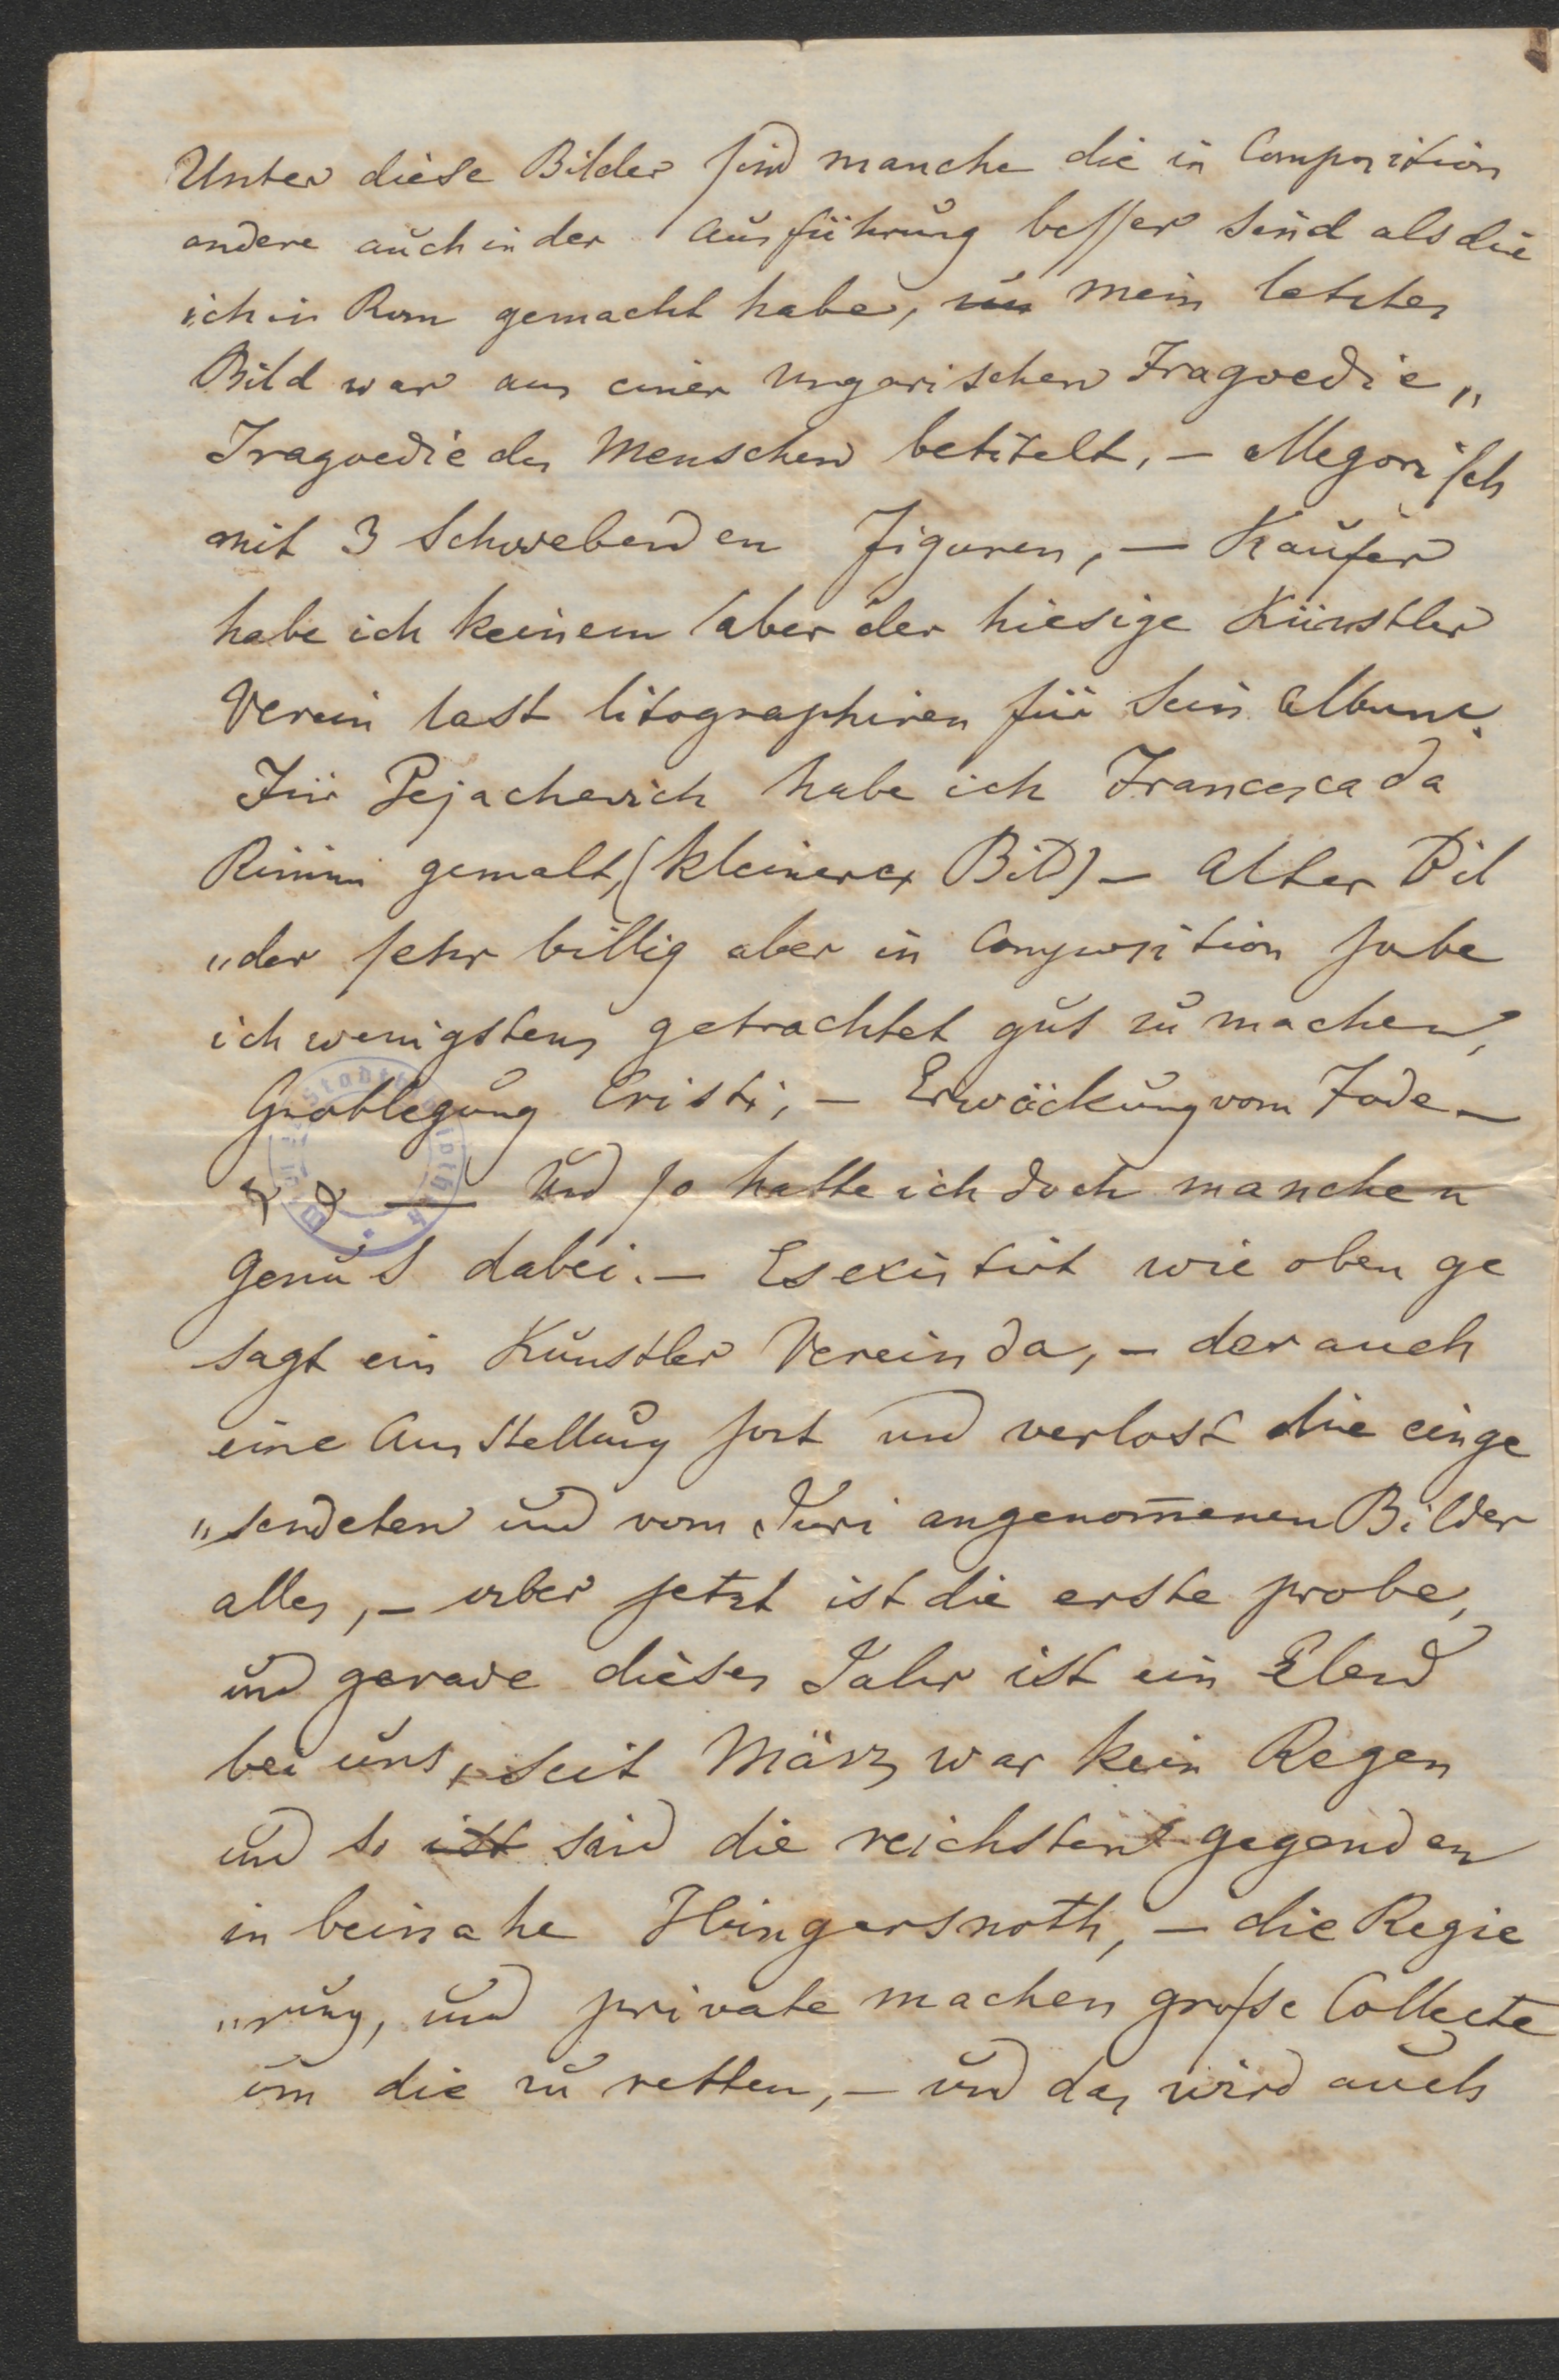 Unter diese Bilder sind manche die in Composition
andere auch in der Ausführung besser sind als die
ich in Rom gemacht habe, mein letztes
Bild war aus einer ungarischen Tragoedie „
Tragoedie des Menschen betitelt, – allegorisch
mit 3 Schwebenden Figuren, – Käufer
habe ich keinem aber der hiesige Künstler
Verein last litographiren für sein Album.
Für Pejachevich habe ich Francesca da
Rimini gemalt, (kleineres Bild) – Alter Bil
„der sehr billig aber in Composition habe
ich wenigstens getrachtet gut zu machen,
Grablegung Cristi, – Erwäckung vom Tode –
& & — Und so hatte ich doch manchen
Genuß dabei. – Es existirt wie oben ge
sagt ein Künstler Verein da, – der auch
eine Ausstellung hat und verlost die einge
„sendeten und vom Juri angenom̄enen Bilder
alles, – aber jetzt ist die erste probe,
und gerade dieses Jahr ist ein Elend
bei uns, seit März war kein Regen
und so ist sind die reichsten gegenden
in beinahe Hungersnoth, – die Regie
„rung, und private machen große Collecte
um die zu retten, – und das wird auch